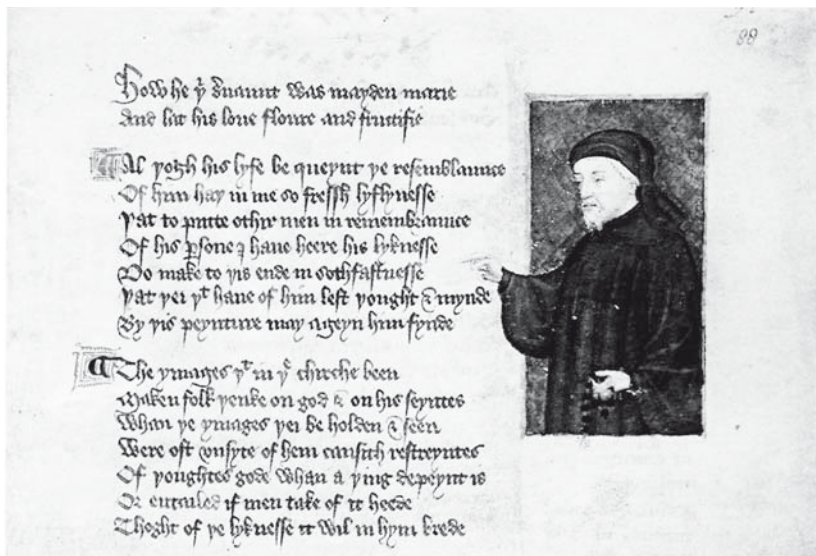 88
How he þͥ seruaunt was mayden marie
And lat his loue floure and fructifie
Al þogh his lyfe be queynt þe resemblaunce
Of him haþ in me so fressh lyflynesse
Þat to putte othir men in remembraunce
Of his ꝑsone I haue heere his lyknesse
Do make to þis ende in sothfastnesse
Þat þei þͭ haue of him left þought & mynde
By þis peynture may ageyn him fynde
The ymages þͭ in þͤ chirche been
Maken folk þenke on god & on his seyntes
Whan þe ymages þei be holden & seen
Were oft vnsyte of hem causith restreyntes
Of þoughtes gode whan a þing depeynt is
Or entailed if men take of it heede
Thoght of þe lyknesse it wil in hym brede